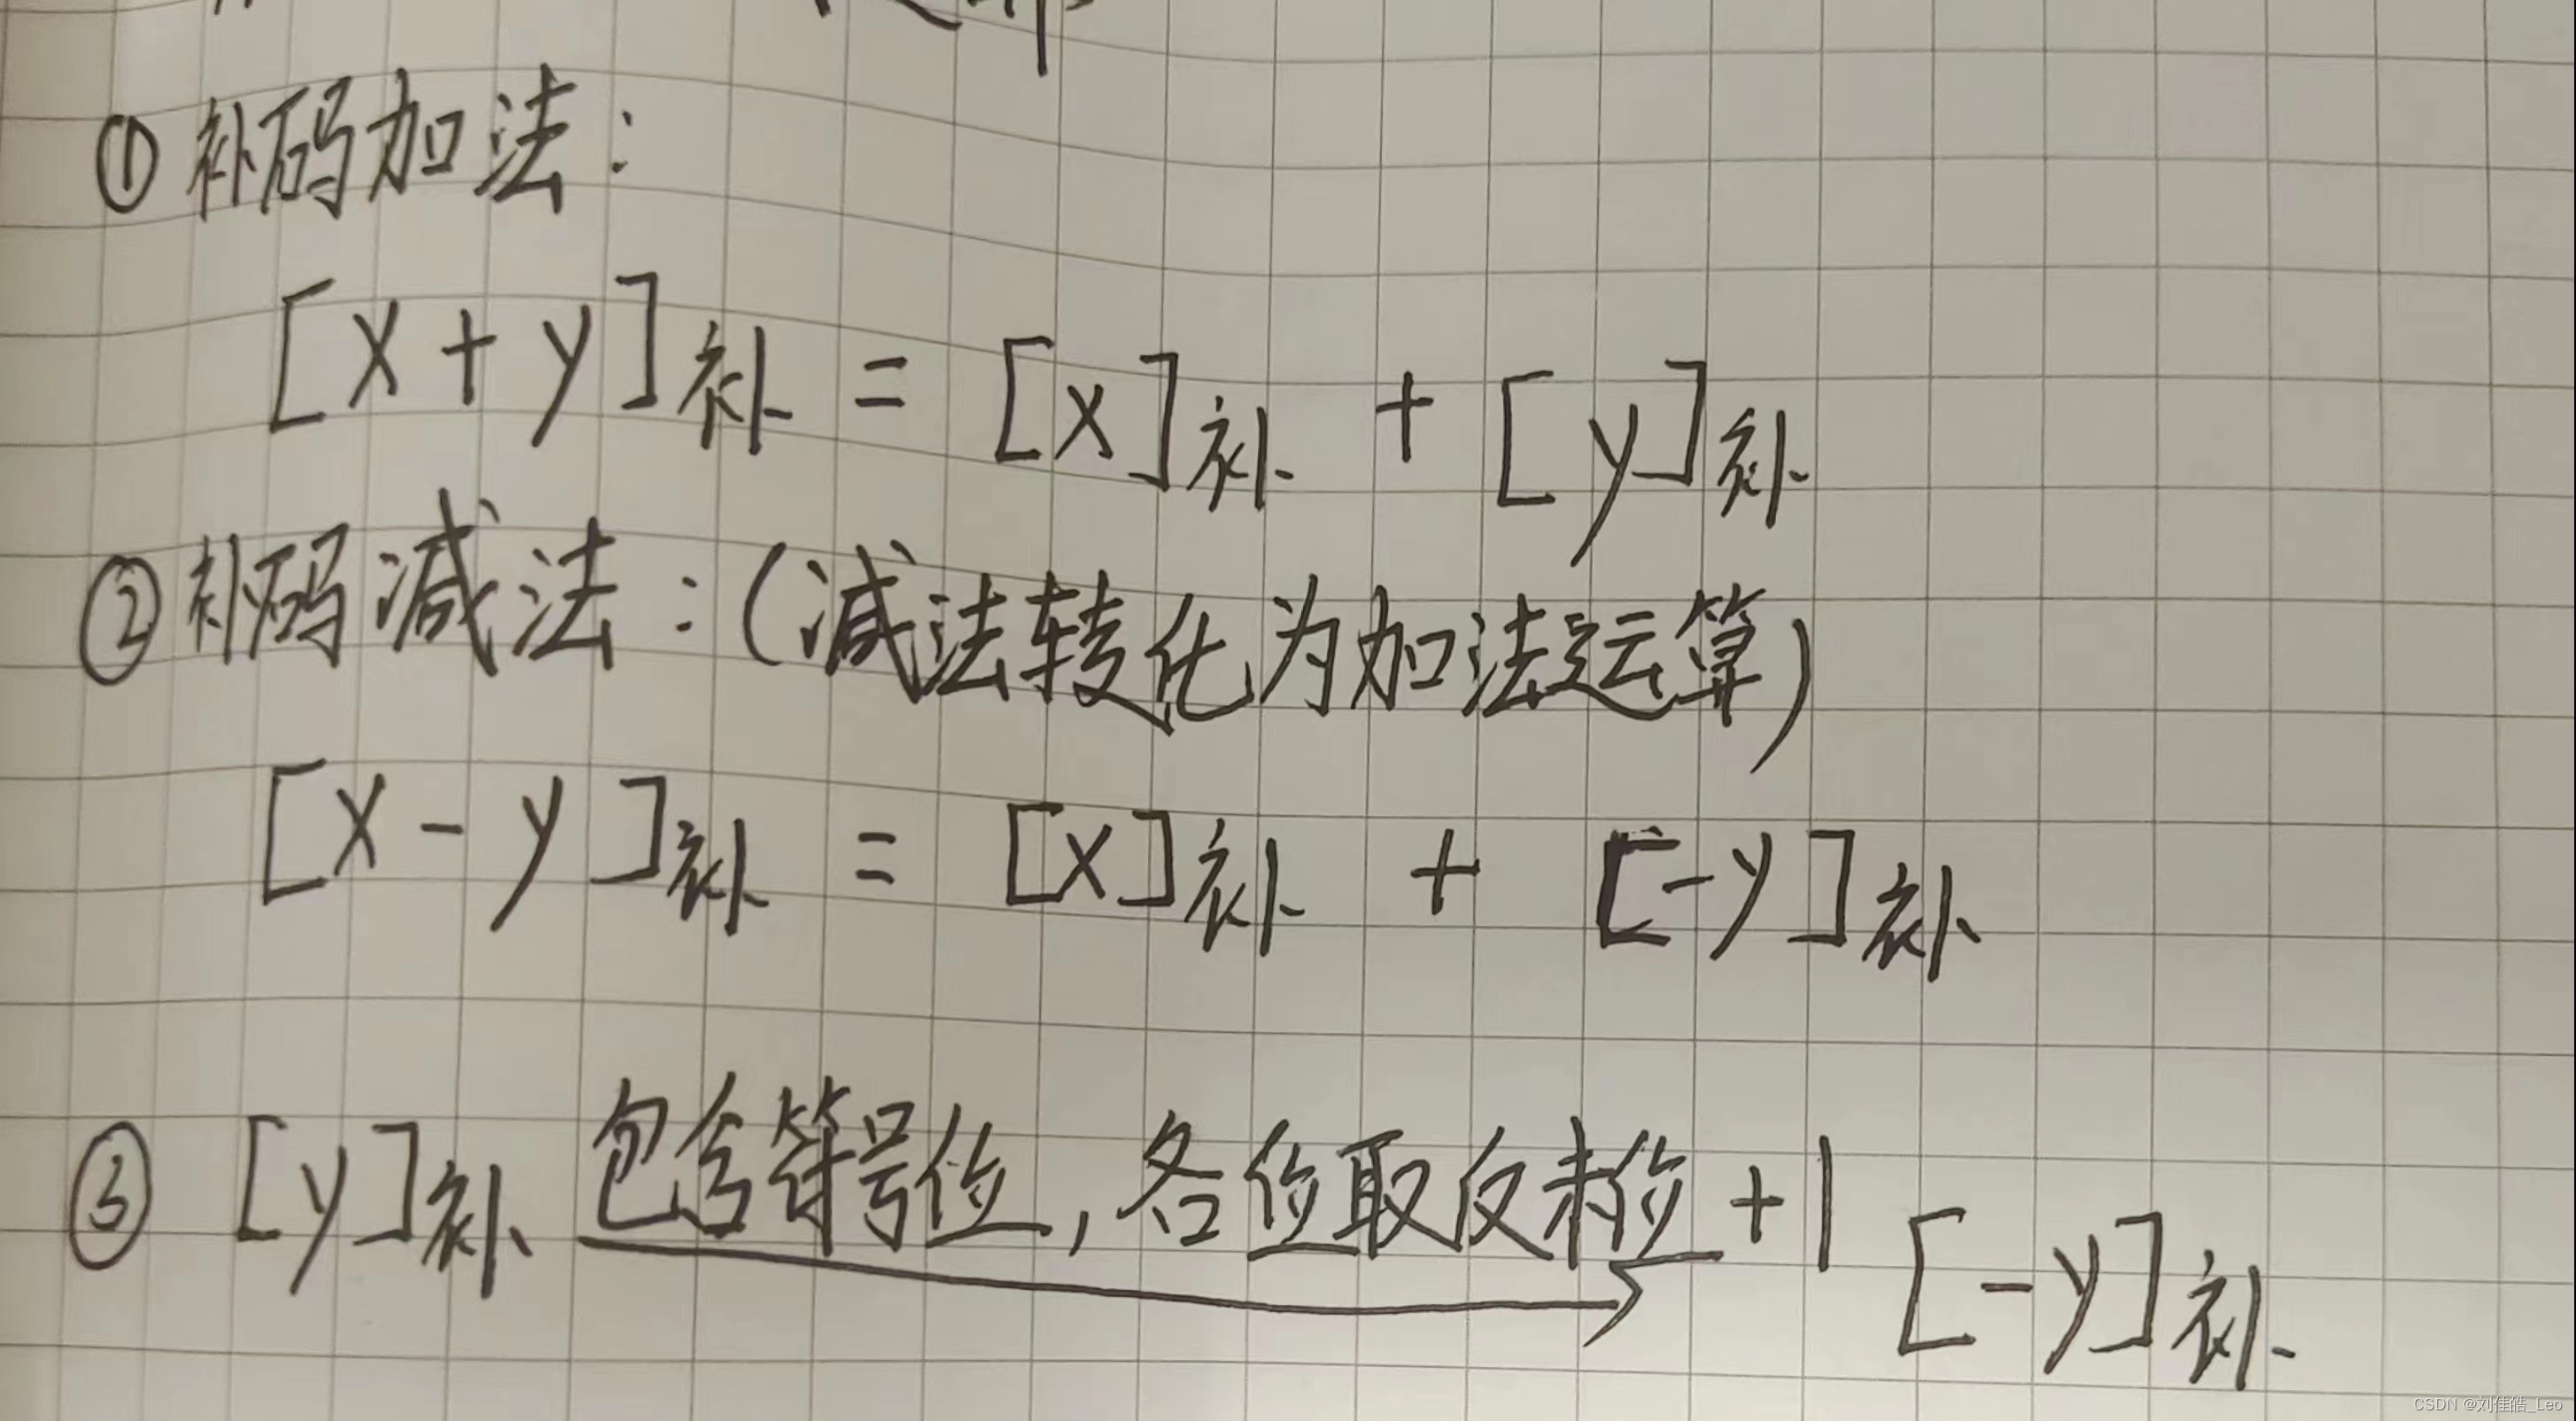 ① 补码加法:
[x+y]补 = [x]补 + [y]补
② 补码减法:(减法转化为加法运算)
[x-y]补 = [x]补 + [-y]补
③ [y]补 包含符号位,各位取反末位+1 [-y]补
CSDN @刘佳皓_Leo